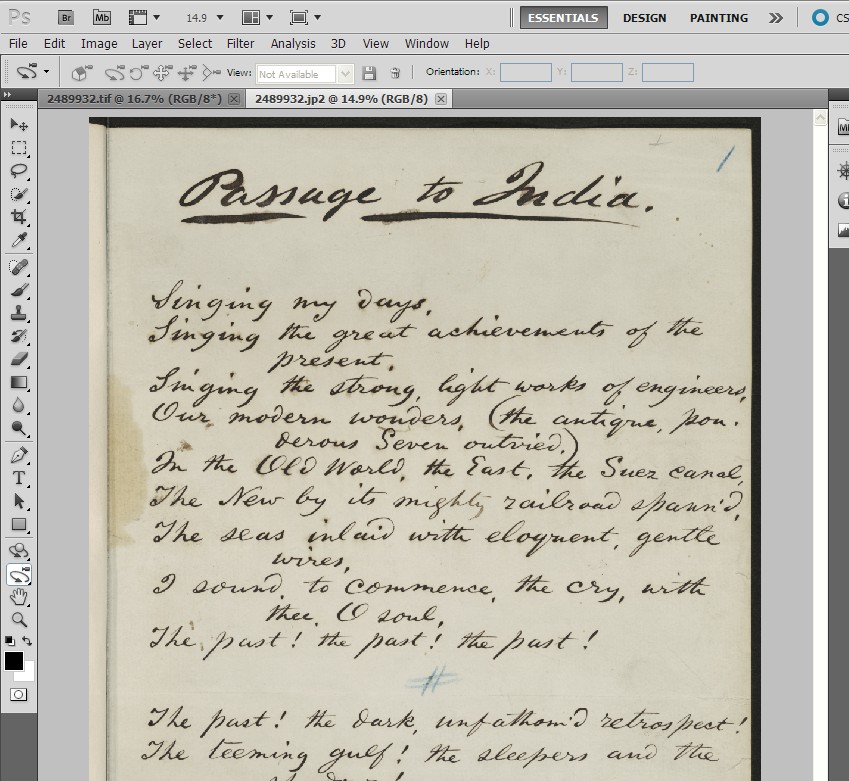 Ps Br Mb 14.9 ESSENTIALS DESIGN PAINTING CS
File Edit Image Layer Select Filter Analysis 3D View Window Help
View: Not Available Orientation: X: Y: Z:
2489932.tif @ 16.7% (RGB/8*) 2489932.jp2 @ 14.9% (RGB/8)
1
Passage to India.
Singing my days,
Singing the great achievements of the
present,
Singing the strong, light works of engineers,
Our modern wonders, (the antique, pon-
derous Seven outvied,)
In the Old World, the East, the Suez canal,
The New by its mighty railroad spann'd,
The seas inlaid with eloquent, gentle
wires,
I sound, to commence, the cry, with
thee, O soul,
The past! the past! the past!
#
The past! the dark, unfathom'd retrospect!
The teeming gulf! the sleepers and the